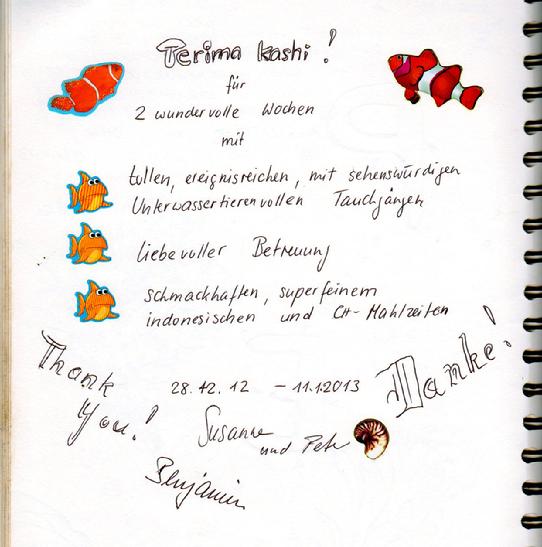 Terima kashi!
für
2 wundervolle Wochen
mit
tollen, ereignisreichen, mit sehenswürdigen
Unterwassertieren vollen Tauchgängen
liebevoller Betreuung
schmackhaften, superfeinem
indonesischen und CH-Mahlzeiten
Thank
You!
Danke!
28.12.12 – 11.1.2013
Susanne
und Peter
Benjamin